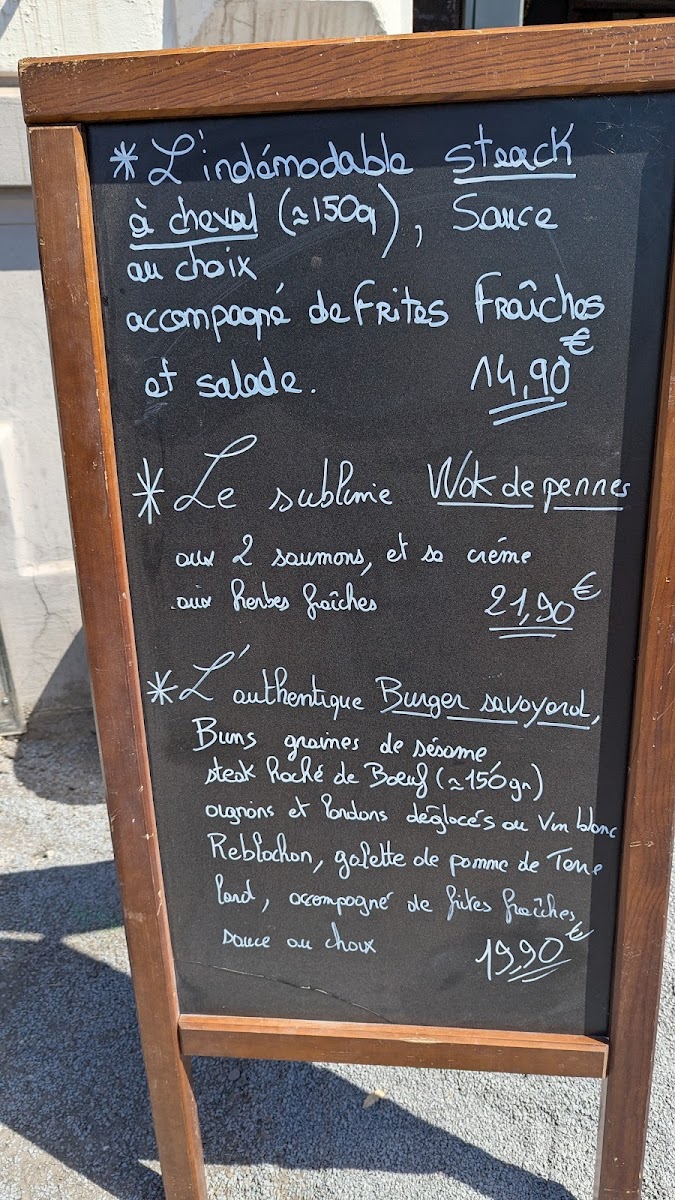 * L'indémodable steack
à cheval (≈150g), Sauce
au choix
accompagné de Frites Fraîches
et salade. 14,90€
* Le sublime Wok de pennes
aux 2 saumons, et sa crème
aux herbes fraîches 21,90€
* L'authentique Burger savoyard,
Buns graines de sésame
steak haché de Boeuf (≈150gr)
oignons et lardons déglacés au Vin blanc
Reblochon, galette de pomme de Terre
lard, accompagné de frites fraîches,
sauce au choix 19,90€